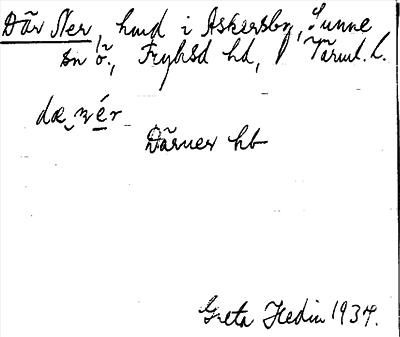 Där Ner, hmd i Askersby, Sunne
sn ö., Fryksd hd, Värml. l.
dæ nér
Därner hb
Greta Hedin 1934.